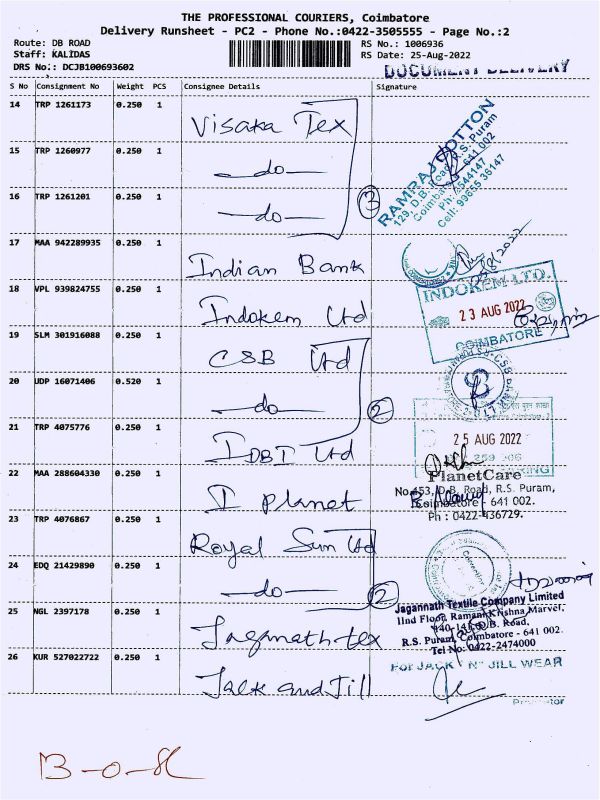 THE PROFESSIONAL COURIERS, Coimbatore
Delivery Runsheet - PC2 - Phone No.:0422-3505555 - Page No.:2
Route: DB ROAD
RS No.: 1006936
Staff: KALIDAS
RS Date: 25-Aug-2022
DRS No.: DCJB100693602
DOCUMENT DELIVERY
S No Consignment No Weight PCS Consignee Details Signature
14 TRP 1261173 0.250 1 Visaka Tex
15 TRP 1260977 0.250 1 —do—
16 TRP 1261201 0.250 1 —do—
3
RAMRAJ COTTON
129, D.B. Road, R.S. Puram
Coimbatore - 641 002
Ph: 4544147
Cell: 99655 36147
17 MAA 942289935 0.250 1 Indian Bank
18 VPL 939824755 0.250 1 Indokem Ltd
INDOKEM LTD.
23 AUG 2022
COIMBATORE
19 SLM 301916088 0.250 1 CSB Ltd
20 UDP 16071406 0.520 1 —do—
2
21 TRP 4075776 0.250 1 IDBI Ltd
25 AUG 2022
22 MAA 288604330 0.250 1 I planet
PlanetCare
No.453, D.B. Road, R.S. Puram,
Coimbatore - 641 002.
Ph : 0422-436729.
23 TRP 4076867 0.250 1 Royal Sun Ltd
24 EDQ 21429890 0.250 1 —do—
2
25 NGL 2397178 0.250 1 Jaganath tex
Jagannath Textile Company Limited
IInd Floor, Ramani Krishna Marvel,
D.B. Road,
R.S. Puram, Coimbatore - 641 002.
Tel No: 0422-2474000
26 KUR 527022722 0.250 1 Jack and Jill
For JACK 'N' JILL WEAR
Proprietor